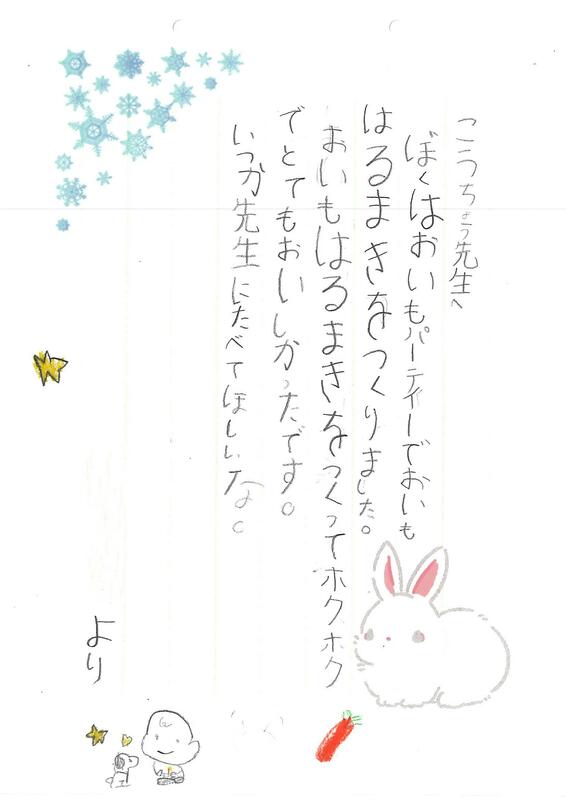 こうちょう先生へ
ぼくはおいもパーティーでおいも
はるまきをつくりました。
おいもはるまきをつくってホクホク
でとてもおいしかったです。
いつか先生にたべてほしいな。
より